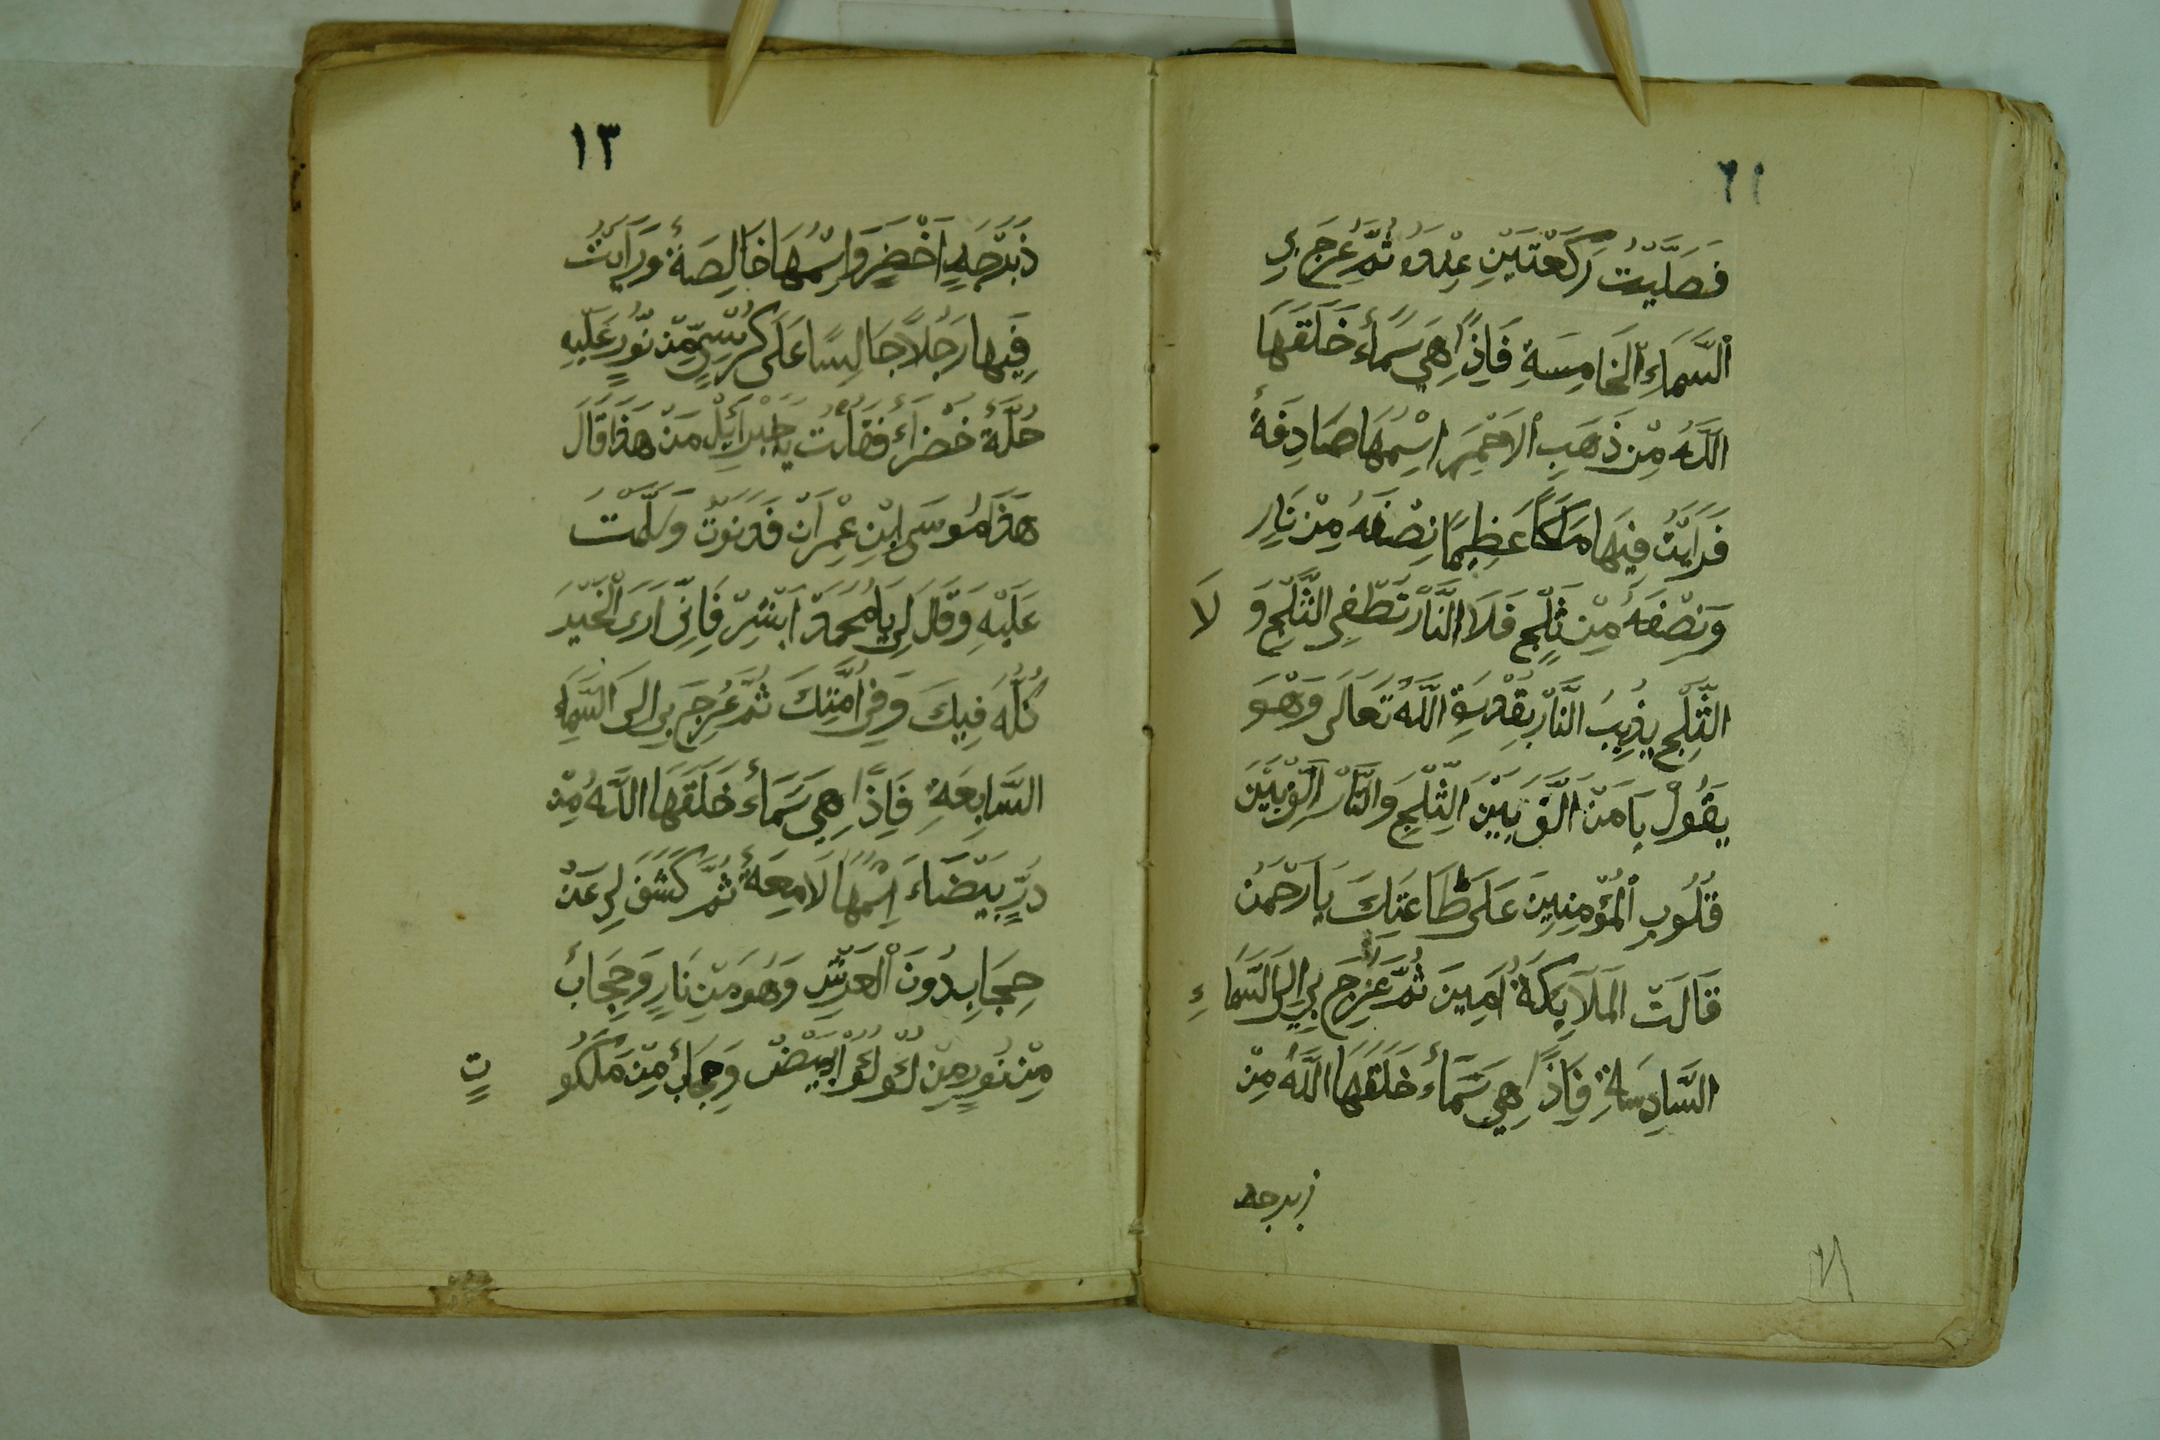 ١٢
فَصَلَّيْتُ رَكْعَتَيْنِ عِنْدَهُ ثُمَّ عُرِجَ بِي
السَّمَاءِ الْخَامِسَةِ فَاِذًا هِيَ سَمَاءُ خَلَقَهَا
اللَّهُ مِنْ ذَهَبِ الْاَحْمَرِ اِسْمُهَا صَادِفَةُ
فَرَاَيْتُ فِيهَا مَلَكًا عَظِيمًا نِصْفَهُ مِنْ نَارٍ
وَنِصْفَهُ مِنْ ثَلْجٍ فَلَا النَّارْ تَطْفِي الثَّلْجَ وَ لَا
الثَّلْجِ يذِيبُ النَّارْ بِقُدْرَةِ اللَّهُ تَعَالَى وَهْوَ
يَقُولْ يَا مَنْ اَلَّفَ بَيْنَ الثَّلْجِ وَالنَّارْ اَلِّفْ بَيْنَ
قُلُوبِ الْمُؤْمِنِينَ عَلَى طَاعَتِكَ يَا رَحْمَنُ
قَالَتْ الْمَلَايِكَةُ اَمِينَ ثُمَّ عُرِجَ بِي اِلَى السَّمَاءِ
السَّادِسَةِ فَاِذًا هِيَ سَمَاءُ خَلَقَهَا اللَّهُ مِنْ
زبرجه
١٣
زَبَرْجَهٍ اَخْضَرَ وَاِسْمُهَا خَالِصَةُ وَرَاَيْتُ
فِيهَا رَجُلًا جَالِسًا عَلَى كُرْسِيٍّ مِّنْ نُّورٍ عَلَيْهِ
حُلَّةُ خَضْرَاءُ فَقُلْتُ يَا جَبْرَائِلُ مَنْ هَذَا قَالَ
هَذَا مُوسَى ابْنِ عِمْرَانْ فَدَنَوْتُ وَسَلَّمْتَ
عَلَيْهِ وَقَالَ لِي يَا مُحَمَّدْ اَبْشِرْ فَاِنِّي اَرَى الْخَيْرَ
كُلُّهُ فِيكَ وَفِي اُمَّتِكَ ثُمَّ عُرِجَ بِي اِلَى السَّمَاءِ
السَّابِعَةِ فَاِذًا هِيَ سَمَاءُ خَلَقَهَا اللَّهُ مِنْ
دُرٍّ بَيْضَاءَ اِسْمُهَا لَامِعَةُ ثُمَّ كَشَفَ لِي عَنْ
حِجَابِ دُونَ الْعَرْشِ وَهُوَ مِنْ نَارٍ وَحِجَابُ
مِنْ نُورٍ مِنْ لُؤْلُؤْ اَبْيَضْ وَحِجَابُ مِنْ مَلَكُوتٍ